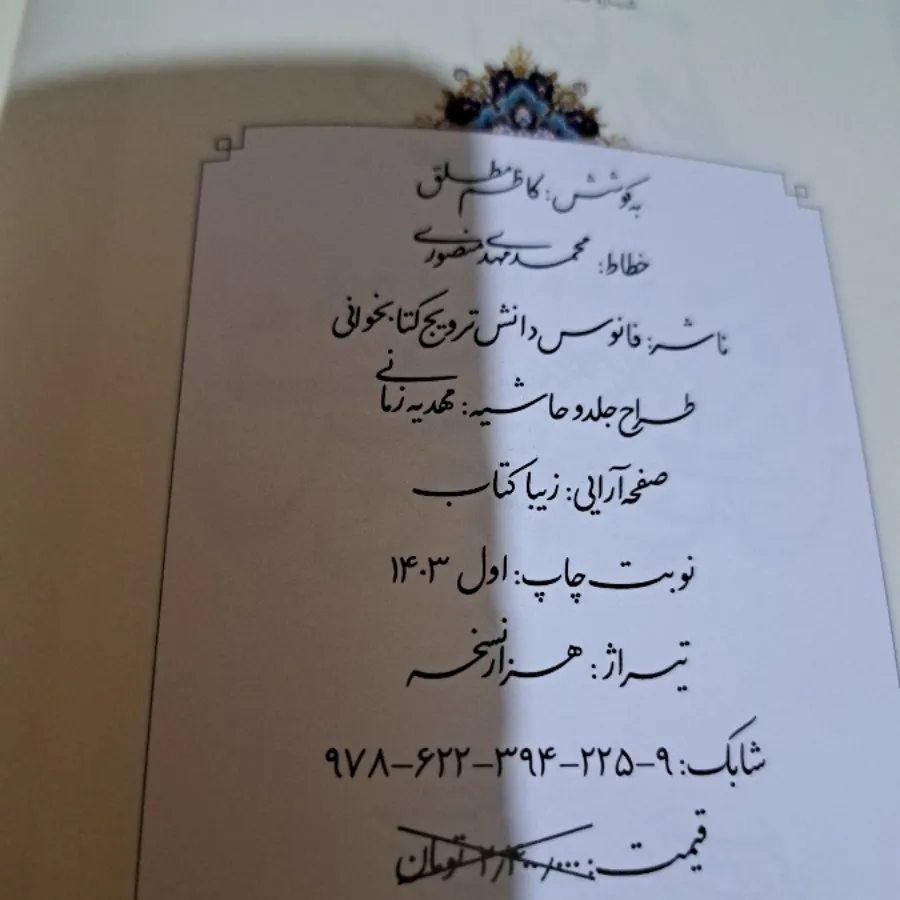 به کوشش: کاظم مطلق
خطاط: محمدمهدی منصوری
ناشر: فانوس دانش ترویج کتابخوانی
طراح جلد و حاشیه: مهدیه زمانی
صفحه‌آرایی: زیبا کتاب
نوبت چاپ: اول ۱۴۰۳
تیراژ: هزار نسخه
شابک: ۹-۲۲۵-۳۹۴-۶۲۲-۹۷۸
قیمت: تومان